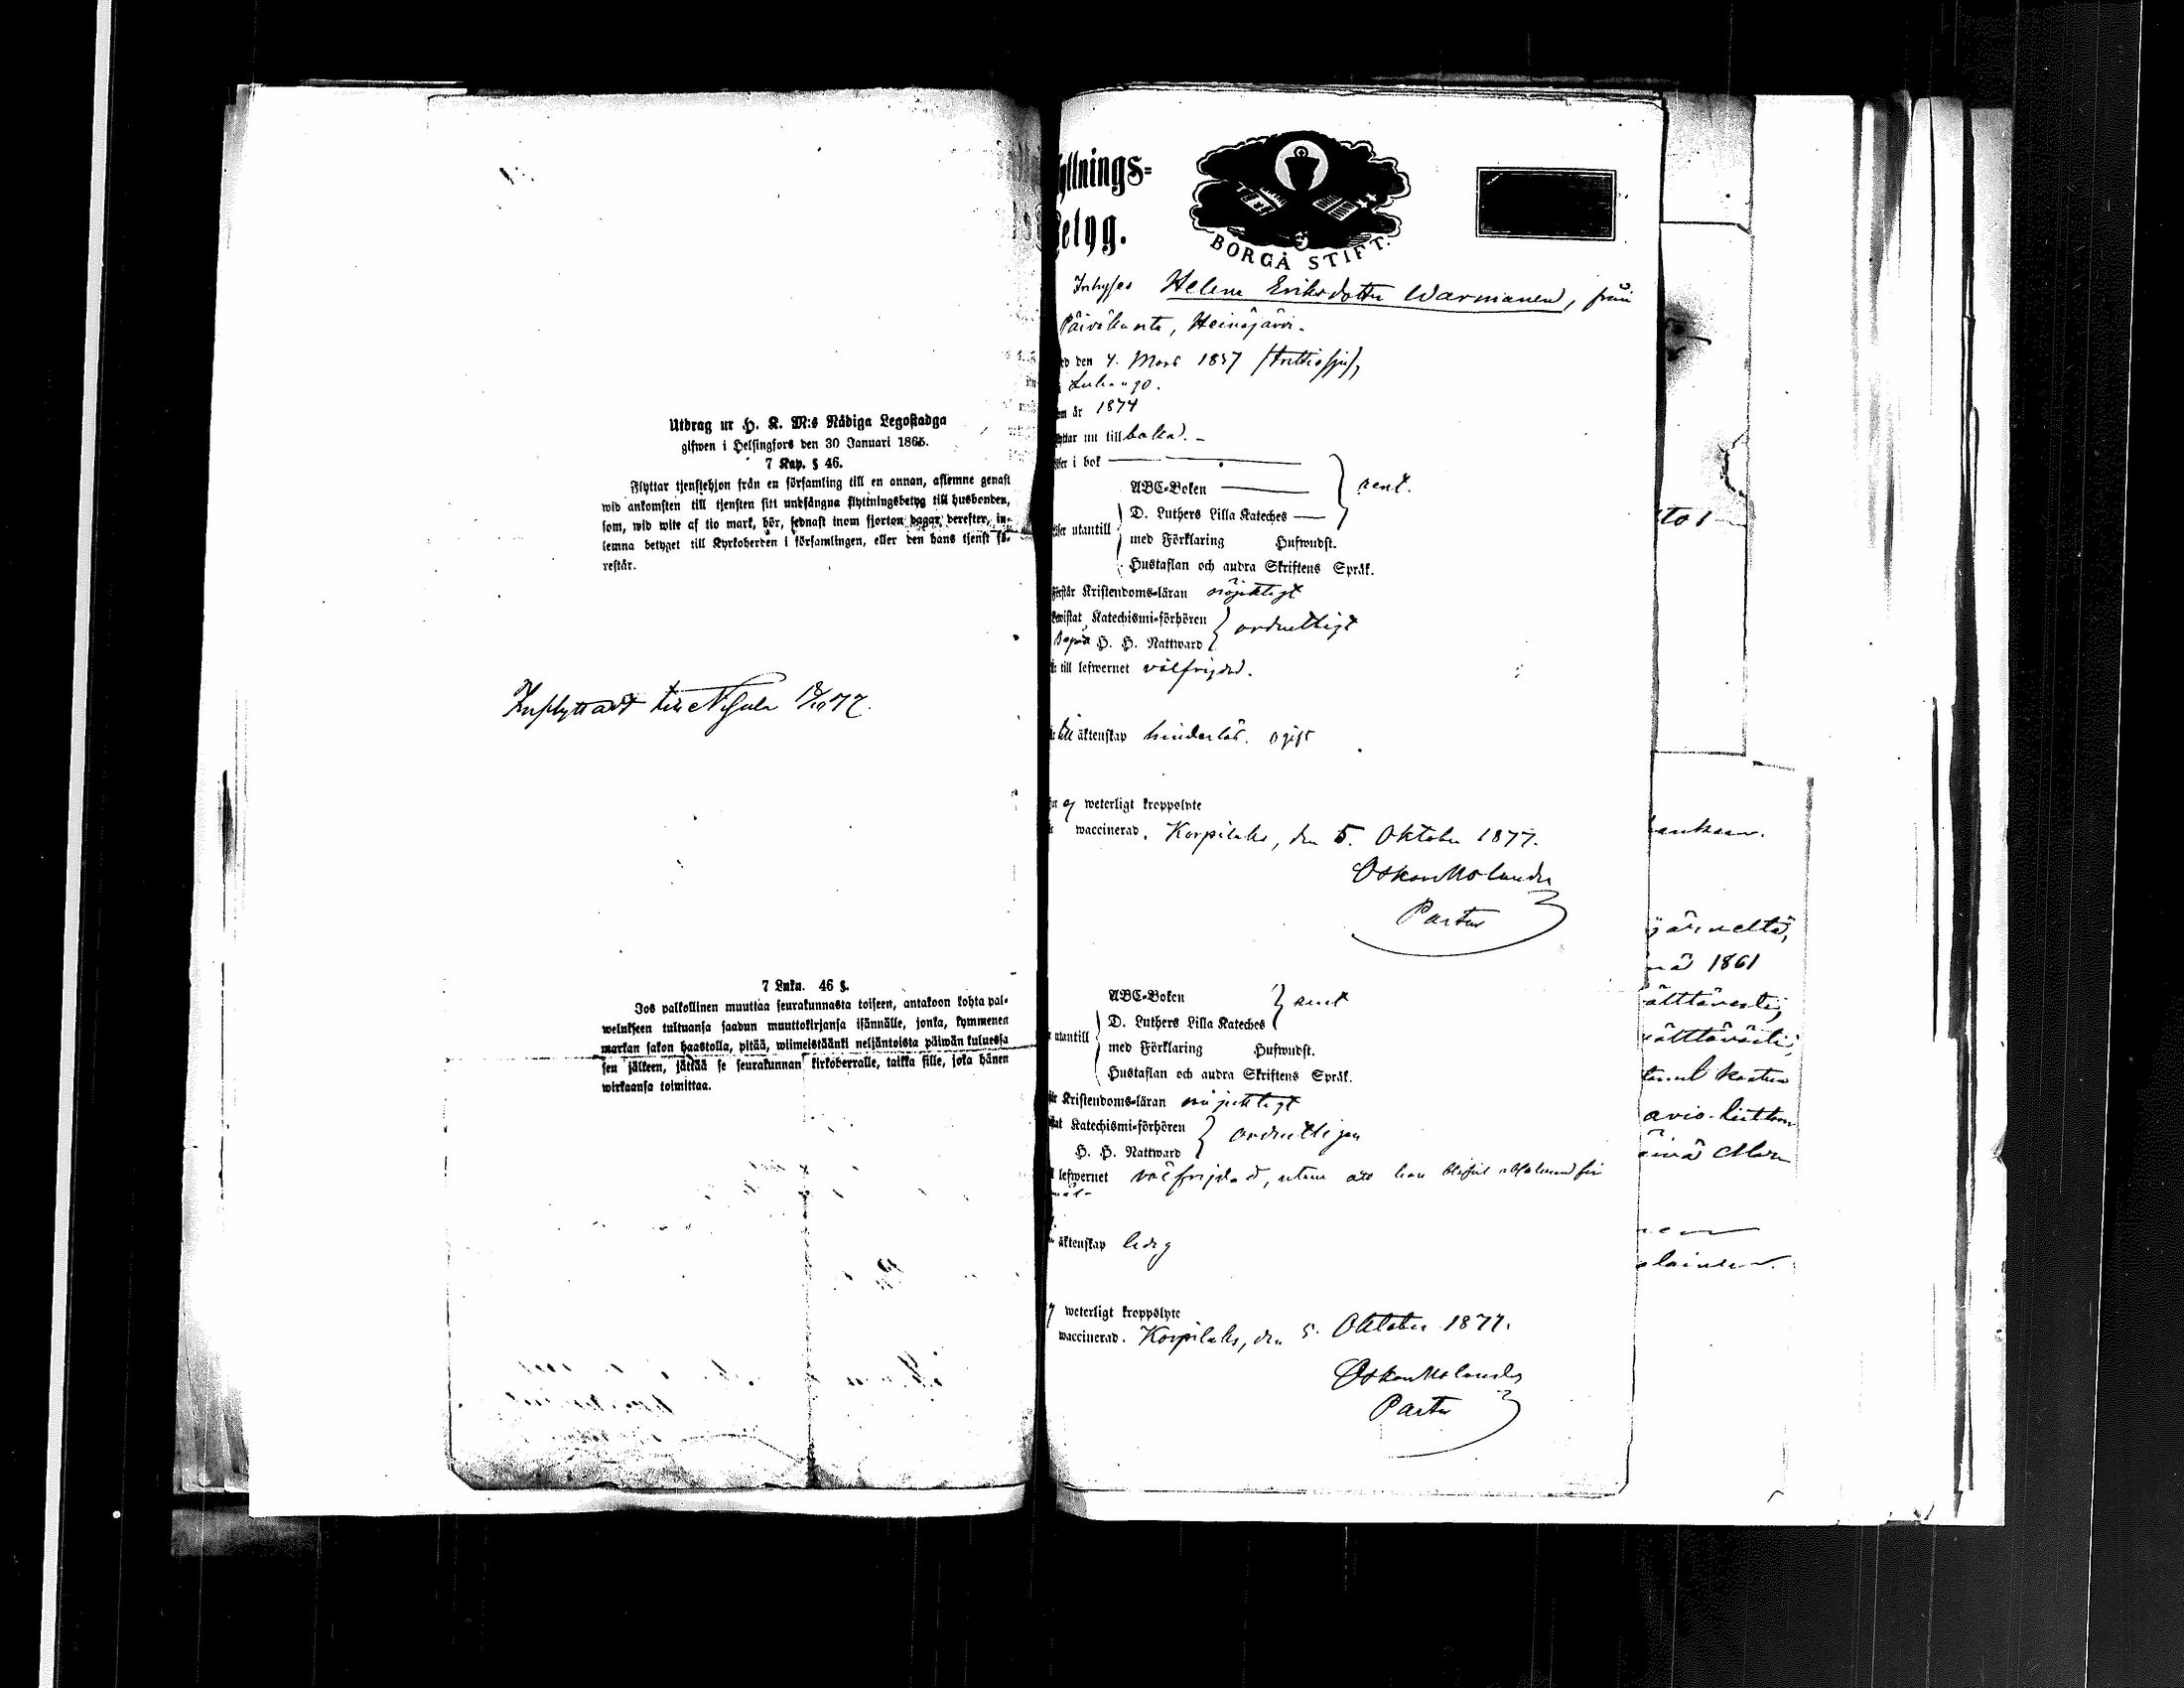 Utdrag ur H. K. M:s Nådiga Legostadga
gifwen i Helsingfors den 30 Januari 1865.
7 Kap. § 46.
Flyttar tjenstehjon från en församling till en annan, aflemne genast
wid ankomsten till tjensten sitt undfångna flyttningsbetyg till husbonden,
som, wid wite af tio mark, bör, sednast inom fjorton dagar derefter, in-
lemna betyget till Kyrkoherden i församlingen, eller den hans tjenst fö-
restår.
Inflyttadt till
7 Luku. 46 §.
Jos palkollinen muuttaa seurakunnasta toiseen, antakoon kohta pal-
welukseen tultuansa saadun muuttokirjansa isännälle, jonka, kymmenen
markan sakon haastolla, pitää, wiimeistäänki neljäntoista päiwän kuluessa
sen jälkeen, jättää se seurakunnan kirkoherralle, taikka sille, joka hänen
wirkaansa toimittaa.
yttnings-
Betyg.
BORGÅ STIFT.
Inhyses Helena Eriksdotter Warmanen, från
Päiväkunta, Heinäjärvi.
den 4. Mars 1837 (trettiosju),
i Luhango.
år 1874
nu till
i bok
ABC-Boken
D. Luthers Lilla Kateches
rent.
utantill
med Förklaring Hufwudst.
Hustaflan och andra Skriftens Språk.
Förstår Kristendoms-läran nöjaktigt
Katechismi-förhören
H. H. Nattward
ordentligt
till lefwernet välfrejdad.
till äktenskap hinderlös. ogift
ej weterligt kroppslyte
waccinerad. Korpilaks, den 5. Oktober 1877.
Oskar Molander
Pastor
ABC-Boken
D. Luthers Lilla Kateches
rent
utantill
med Förklaring Hufwudst.
Hustaflan och andra Skriftens Språk.
Kristendoms-läran nöjaktigt
Katechismi-förhören
H. H. Nattward
ordentligen
lefwernet välfrejdad, utom att hon blifvit
äktenskap ledig
weterligt kroppslyte
waccinerad. Korpilaks, den 5. Oktober 1877.
Oskar Molander
Pastor
1861